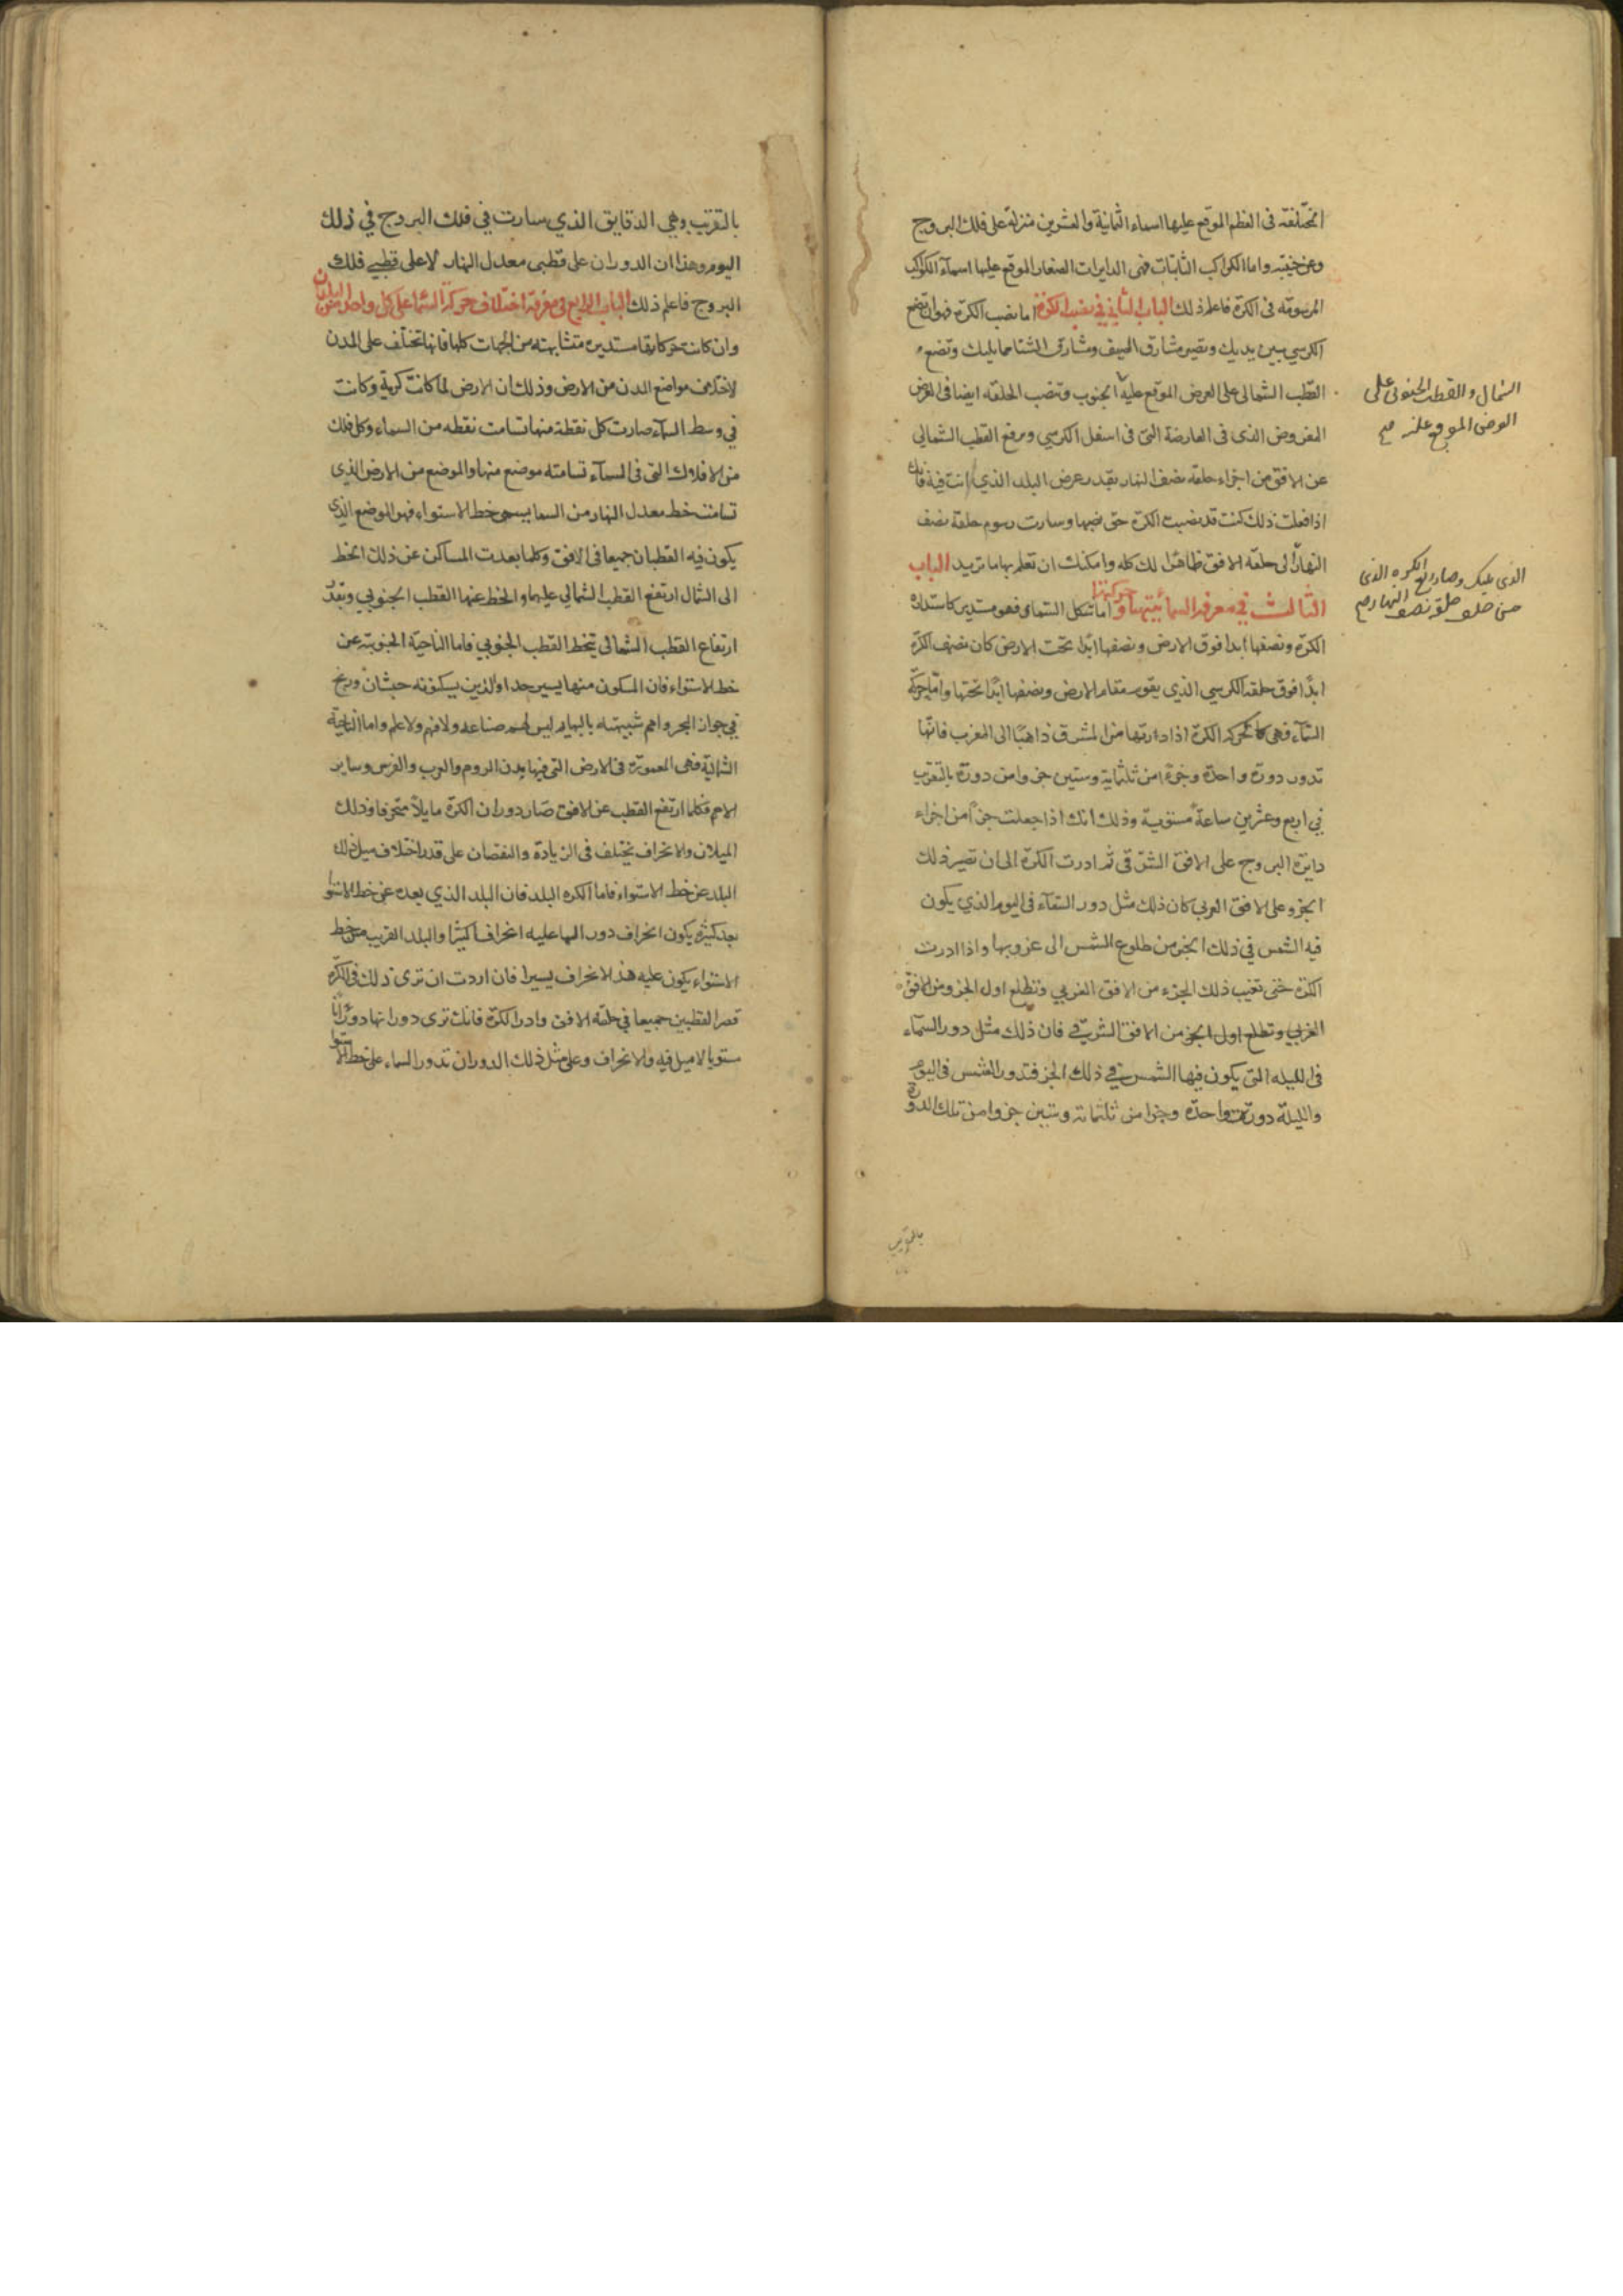 المختلفة فى العظم الموقع عليها اسماء الثمانية والعشرين منزلة على فلك البروج
وعن جنبته واما الكواكب الثابتات فهى الدايرات الصغار الموقع عليها اسمآء الكواكب
المرسومة فى الكرة فاعلم ذلك الباب الثانى في نصب الكرة اما نصب الكرة فهو ان تضع
الكرسي بين يديك وتصير مشارق الصيف ومشارق الشتا مما يليك وتضع
القطب الشمالى على العرض الموقع عليه الجنوب وتنصب الحلقة ايضا فى العرض
المفروض الذى فى العارضة التى فى اسفل الكرسي وترفع القطب الشمالي
عن الافق من اجزاء حلقة نصف النهار بقدر عرض البلد الذي انت فيه فانك
اذا فعلت ذلك كنت قد نصبت الكرة حق نصبها وسارت رسوم حلقة نصف
النهار الى حلقة الافق ظاهرا لك كله وامكنك ان تعلم بها ما تريد الباب
الثالث في معرفة السما هيئتها وحركتها اما شكل السما فهو مستدير كاستدارة
الكرة ونصفها أبدا فوق الارض ونصفها ابدا تحت الارض كان نصف الكرة
ابدًا فوق حلقة الكرسي الذي يقوم مقام الارض ونصفها ابدًا تحتها وأما حركة
السمآء فهى كما تحركه الكرة اذا ادرتها من المشرق ذاهبًا الى المغرب فانّها
تدور دورة واحدة وجزءً من ثلثماية وستين جزوا من دورة بالتقريب
في اربع وعشرين ساعة مستوية وذلك انك اذا جعلت جزءًا من اجزاء
دايرة البروج على الافق الشرقى ثم ادرت الكرة الى ان تصير ذلك
الجزو على الافق الغربى كان ذلك مثل دور السمآء فى اليوم الذي يكون
فيه الشمس في ذلك الجزء من طلوع الشمس الى غروبها واذا ادرت
الكرة حتى تغيب ذلك الجزء من الافق الغربي وتطلع اول الجزو من الافق
الغربي وتطلع اول الجزء من الافق الشرقي فان ذلك مثل دور السمآء
فى الليلة التى يكون فيها الشمس في ذلك الجزء فتدور الشمس فى اليوم
والليلة دورة واحدة وجزوا من ثلثماية وستين جزوا من تلك الدورة
الشمال والقطب الجنوبى على
العرض الموقع عليه صح
الذى يليك وصار ربع الكره الذى
من خلف حلقة نصف النهار صح
بالتقريب
بالتقريب وهي الدقايق الذي سارت في فلك البروج في ذلك
اليوم وهذا ان الدوران على قطبى معدل النهار لا على قطبي فلك
البروج فاعلم ذلك الباب الرابع في معرفة اختلاف حركة السما على كل واحد من البلدان
وان كانت حركاتها مستديرة متشابهة من الجهات كلها فانها تختلف على المدن
لاختلاف مواضع المدن من الارض وذلك ان الارض لما كانت كرية وكانت
في وسط السمآء صارت كل نقطة منها تسامت نقطة من السماء وكل فلك
من الافلاك التى فى السمآء تسامته موضع منها والموضع من الارض الذى
تسامت خط معدل النهار من السما يسمى خط الاستواء فهو الموضع الذى
يكون فيه القطبان جميعا فى الافق وكلما بعدت المساكن عن ذلك الخط
الى الشمال ارتفع القطب الشمالي عليها وانحط عنها القطب الجنوبي وبقدر
ارتفاع القطب الشمالى ينحط القطب الجنوبي فاما الناحية الجنوبية عن
خط الاستواء فان المسكون منها يسير جدا والذين يسكنونه حبشان وزنج
في جوار البحر وامم شبيهة بالبهايم ليس لهم صناعة ولا فهم ولا علم واما الناحية
الشمالية فهى المعمورة فى الارض التى فيها مدن الروم والعرب والفرس وساير
الامم فكلما ارتفع القطب عن الافق صار دوران الكرة مايلاً منحرفا وذلك
الميلان والانحراف يختلف فى الزيادة والنقصان على قدر اختلاف ميل ذلك
البلد عن خط الاستواء فاما الكره البلد فان البلد الذي بعده عن خط الاستوا
بعد كثير يكون انحراف دور السما عليه انحرافا كثيرًا والبلد القريب من خط
الاستواء يكون عليه هذا الانحراف يسيرا فان اردت ان ترى ذلك فى الكرة
فصر القطبين جميعا في حلقة الافق وادر الكرة فانك ترى دورانها دورانًا
مستويا لا ميل فيه ولا انحراف وعلى مثل ذلك الدوران تدور السماء على خط الاستوا